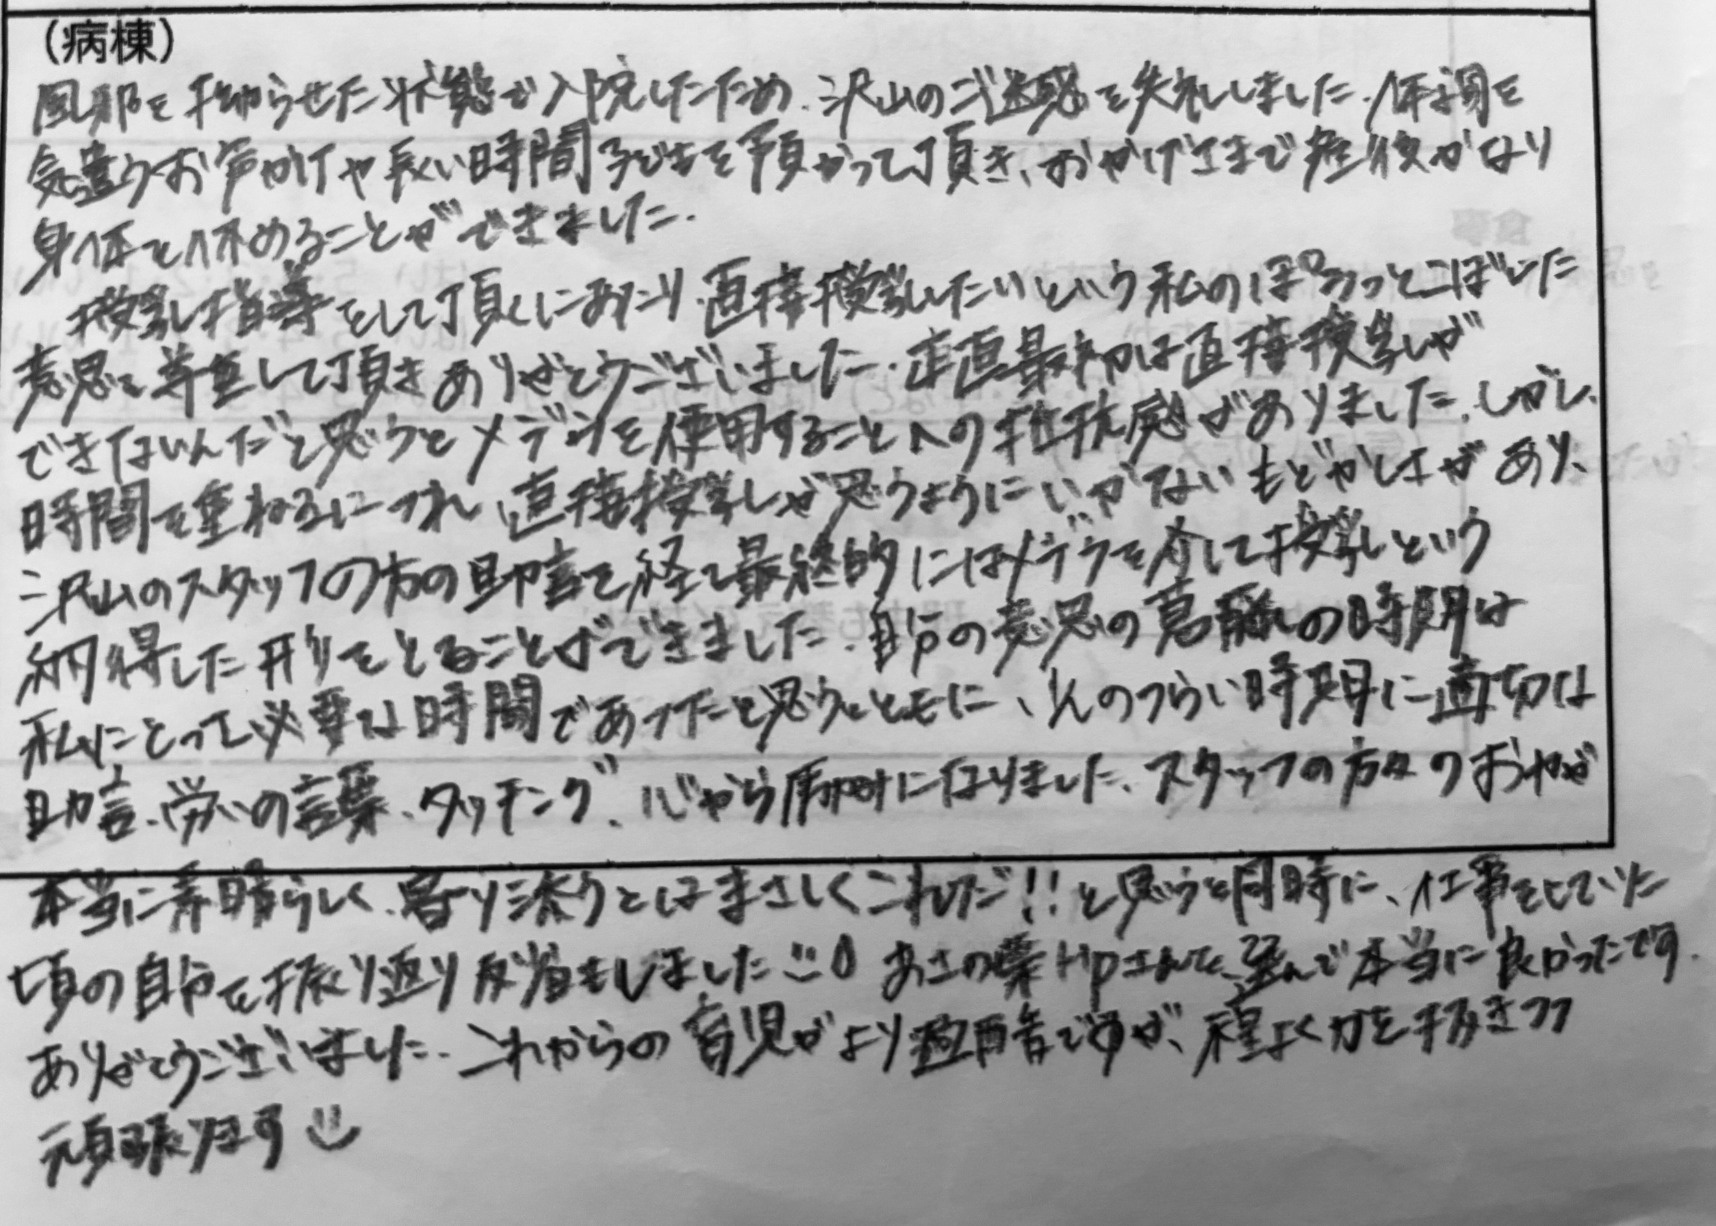 （病棟）
風邪を拗らせた状態で入院したため、沢山のご迷惑を失礼しました。体調を
気遣うお声かけや長い時間子どもを預かって頂き、おかげさまで産後かなり
身体を休めることができました。
授乳指導をして頂くにあたり、直接授乳したいという私のぽろっとこぼした
意思を尊重して頂きありがとうございました。正直最初は直接授乳が
できないんだと思うとメデラを使用することへの抵抗感がありました。しかし、
時間を重ねるにつれ、直接授乳が思うようにいかないもどかしさがあり、
沢山のスタッフの方の助言を経て最終的にはメデラを介して授乳という
納得した形をとることができました。自分の意思の葛藤の時間は
私にとって必要な時間であったと思うとともに、人のつらい時期に適切な
助言、労いの言葉、タッチング、心から癒になりました。スタッフの方々の
本当に素晴らしく、寄り添うとはまさしくこれだ!!と思うと同時に、仕事をしていた
頃の自分を振り返り反省もしました あさの葉Hpさんを選んで本当に良かったです。
ありがとうございました。これからの育児がより過酷ですが、程よく力を抜きつつ
頑張ります